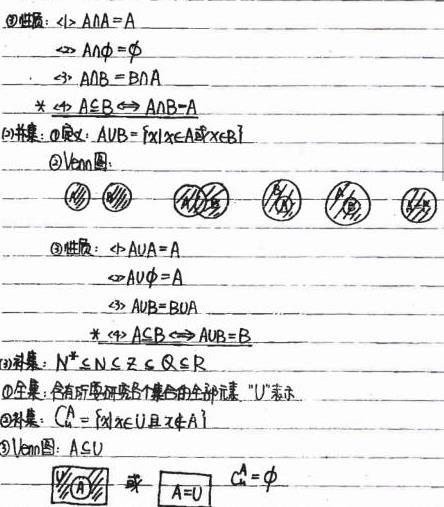 ③性质: <1> A∩A=A
<2> A∩∅=∅
<3> A∩B=B∩A
* <4> A⊆B⟺A∩B=A
(2)并集: ①定义: A∪B={x|x∈A或x∈B}
②Venn图:
A B A B B A A B A=B
③性质: <1> A∪A=A
<2> A∪∅=A
<3> A∪B=B∪A
* <4> A⊆B⟺A∪B=B
(3)补集: N*⊆N⊆Z⊆Q⊆R
①全集: 含有所要研究各个集合的全部元素 "U"表示
②补集: C_u^A={x|x∈U且x∉A}
③Venn图: A⊆U
U A 或 A=U C_u^A=∅